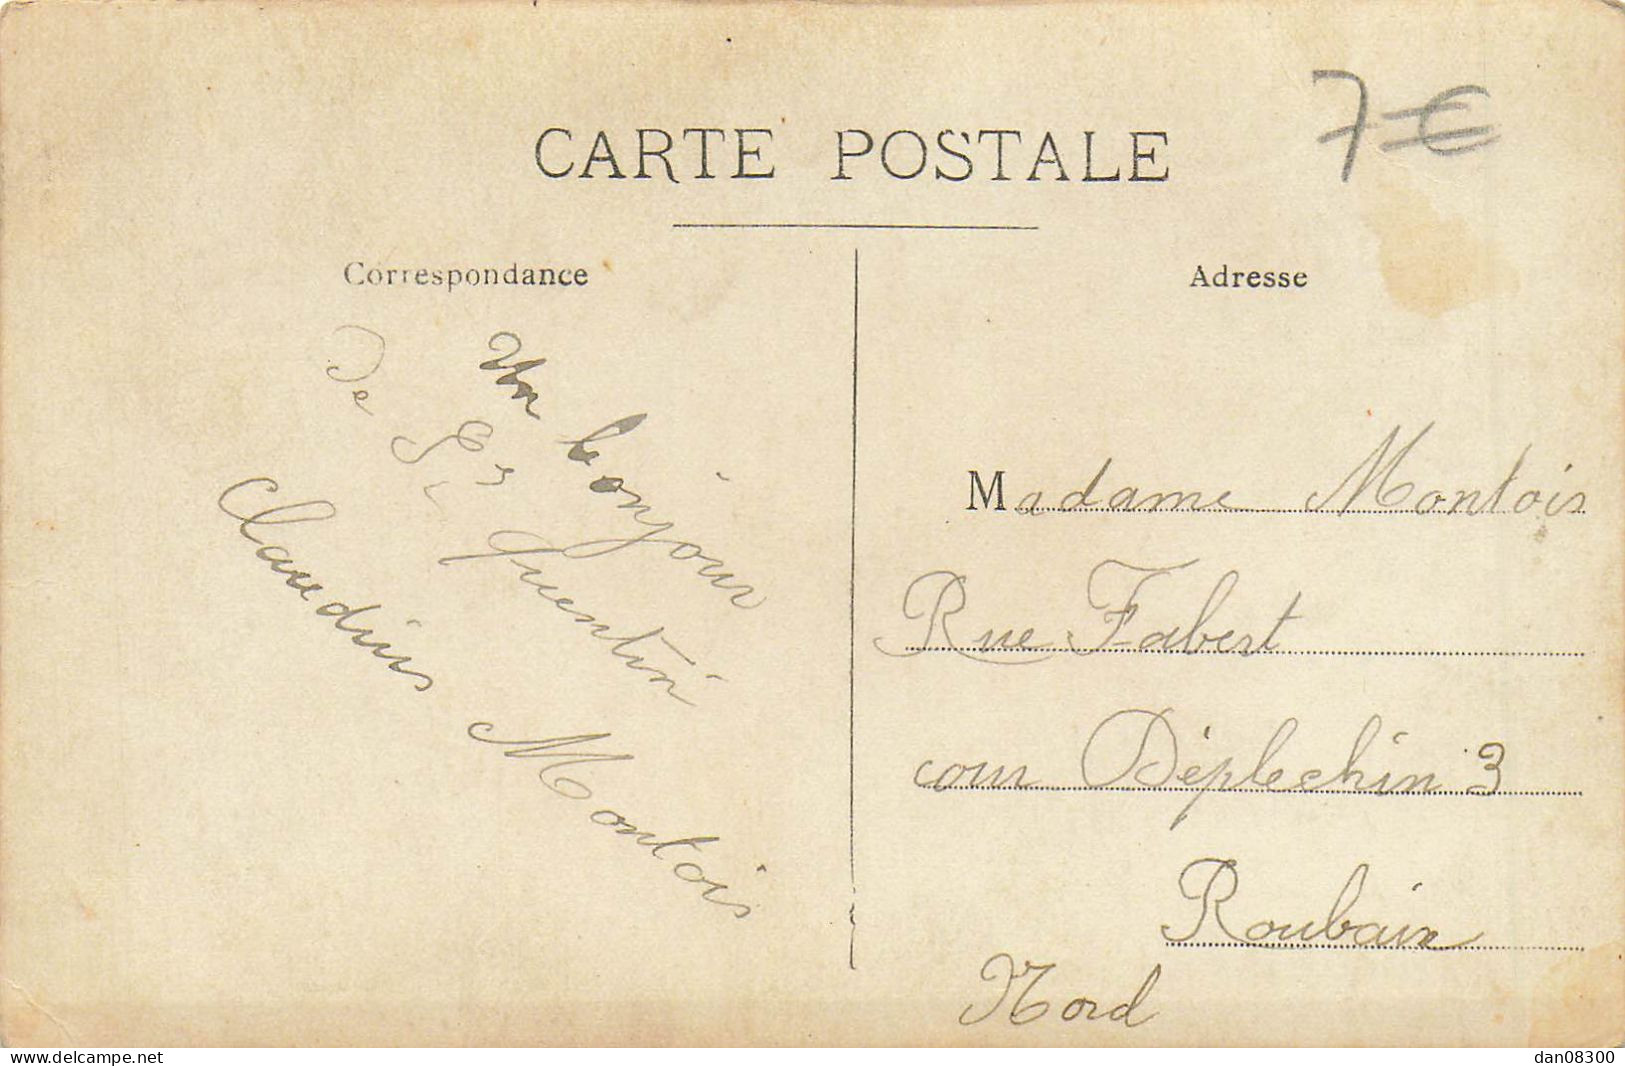 CARTE POSTALE
7 €
Correspondance
Adresse
Un bonjour
De St Quentin
Claudius Montois
Madame Montois
Rue Fabert
cour Déplechin 3
Roubaix
Nord
www.delcampe.net
dan08300